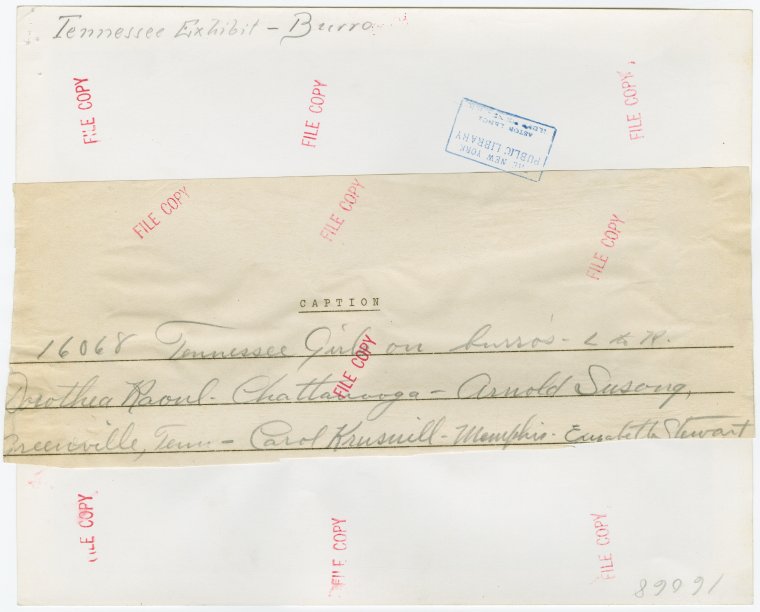 Tennessee Exhibit - Burro
FILE COPY
FILE COPY
FILE COPY
THE NEW YORK
PUBLIC LIBRARY
ASTOR LENOX
FILE COPY
FILE COPY
FILE COPY
CAPTION
16068 Tennessee Girls on burro's - L to R.
FILE COPY
Dorothea Raoul - Chattanooga - Arnold Susong,
Greenville, Tenn - Carol Krusnill - Memphis - Elizabeth Stewart
FILE COPY
FILE COPY
FILE COPY
16068